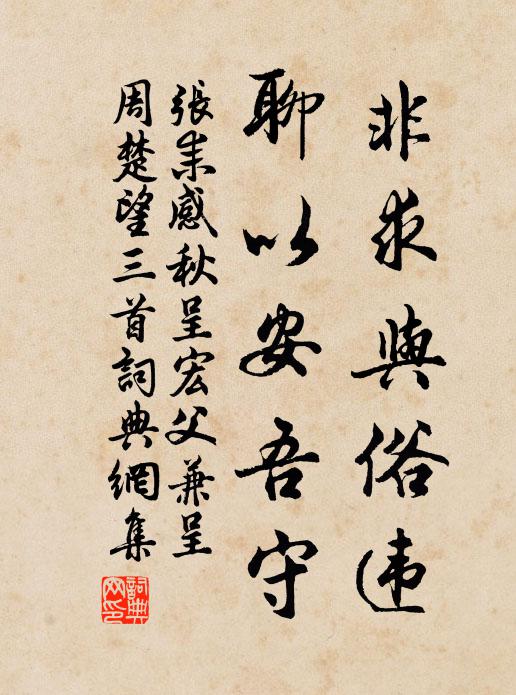 非求與俗違
聊以安吾守
張耒感秋呈宏父兼呈
周楚望三首詞典網集
詞典
网印